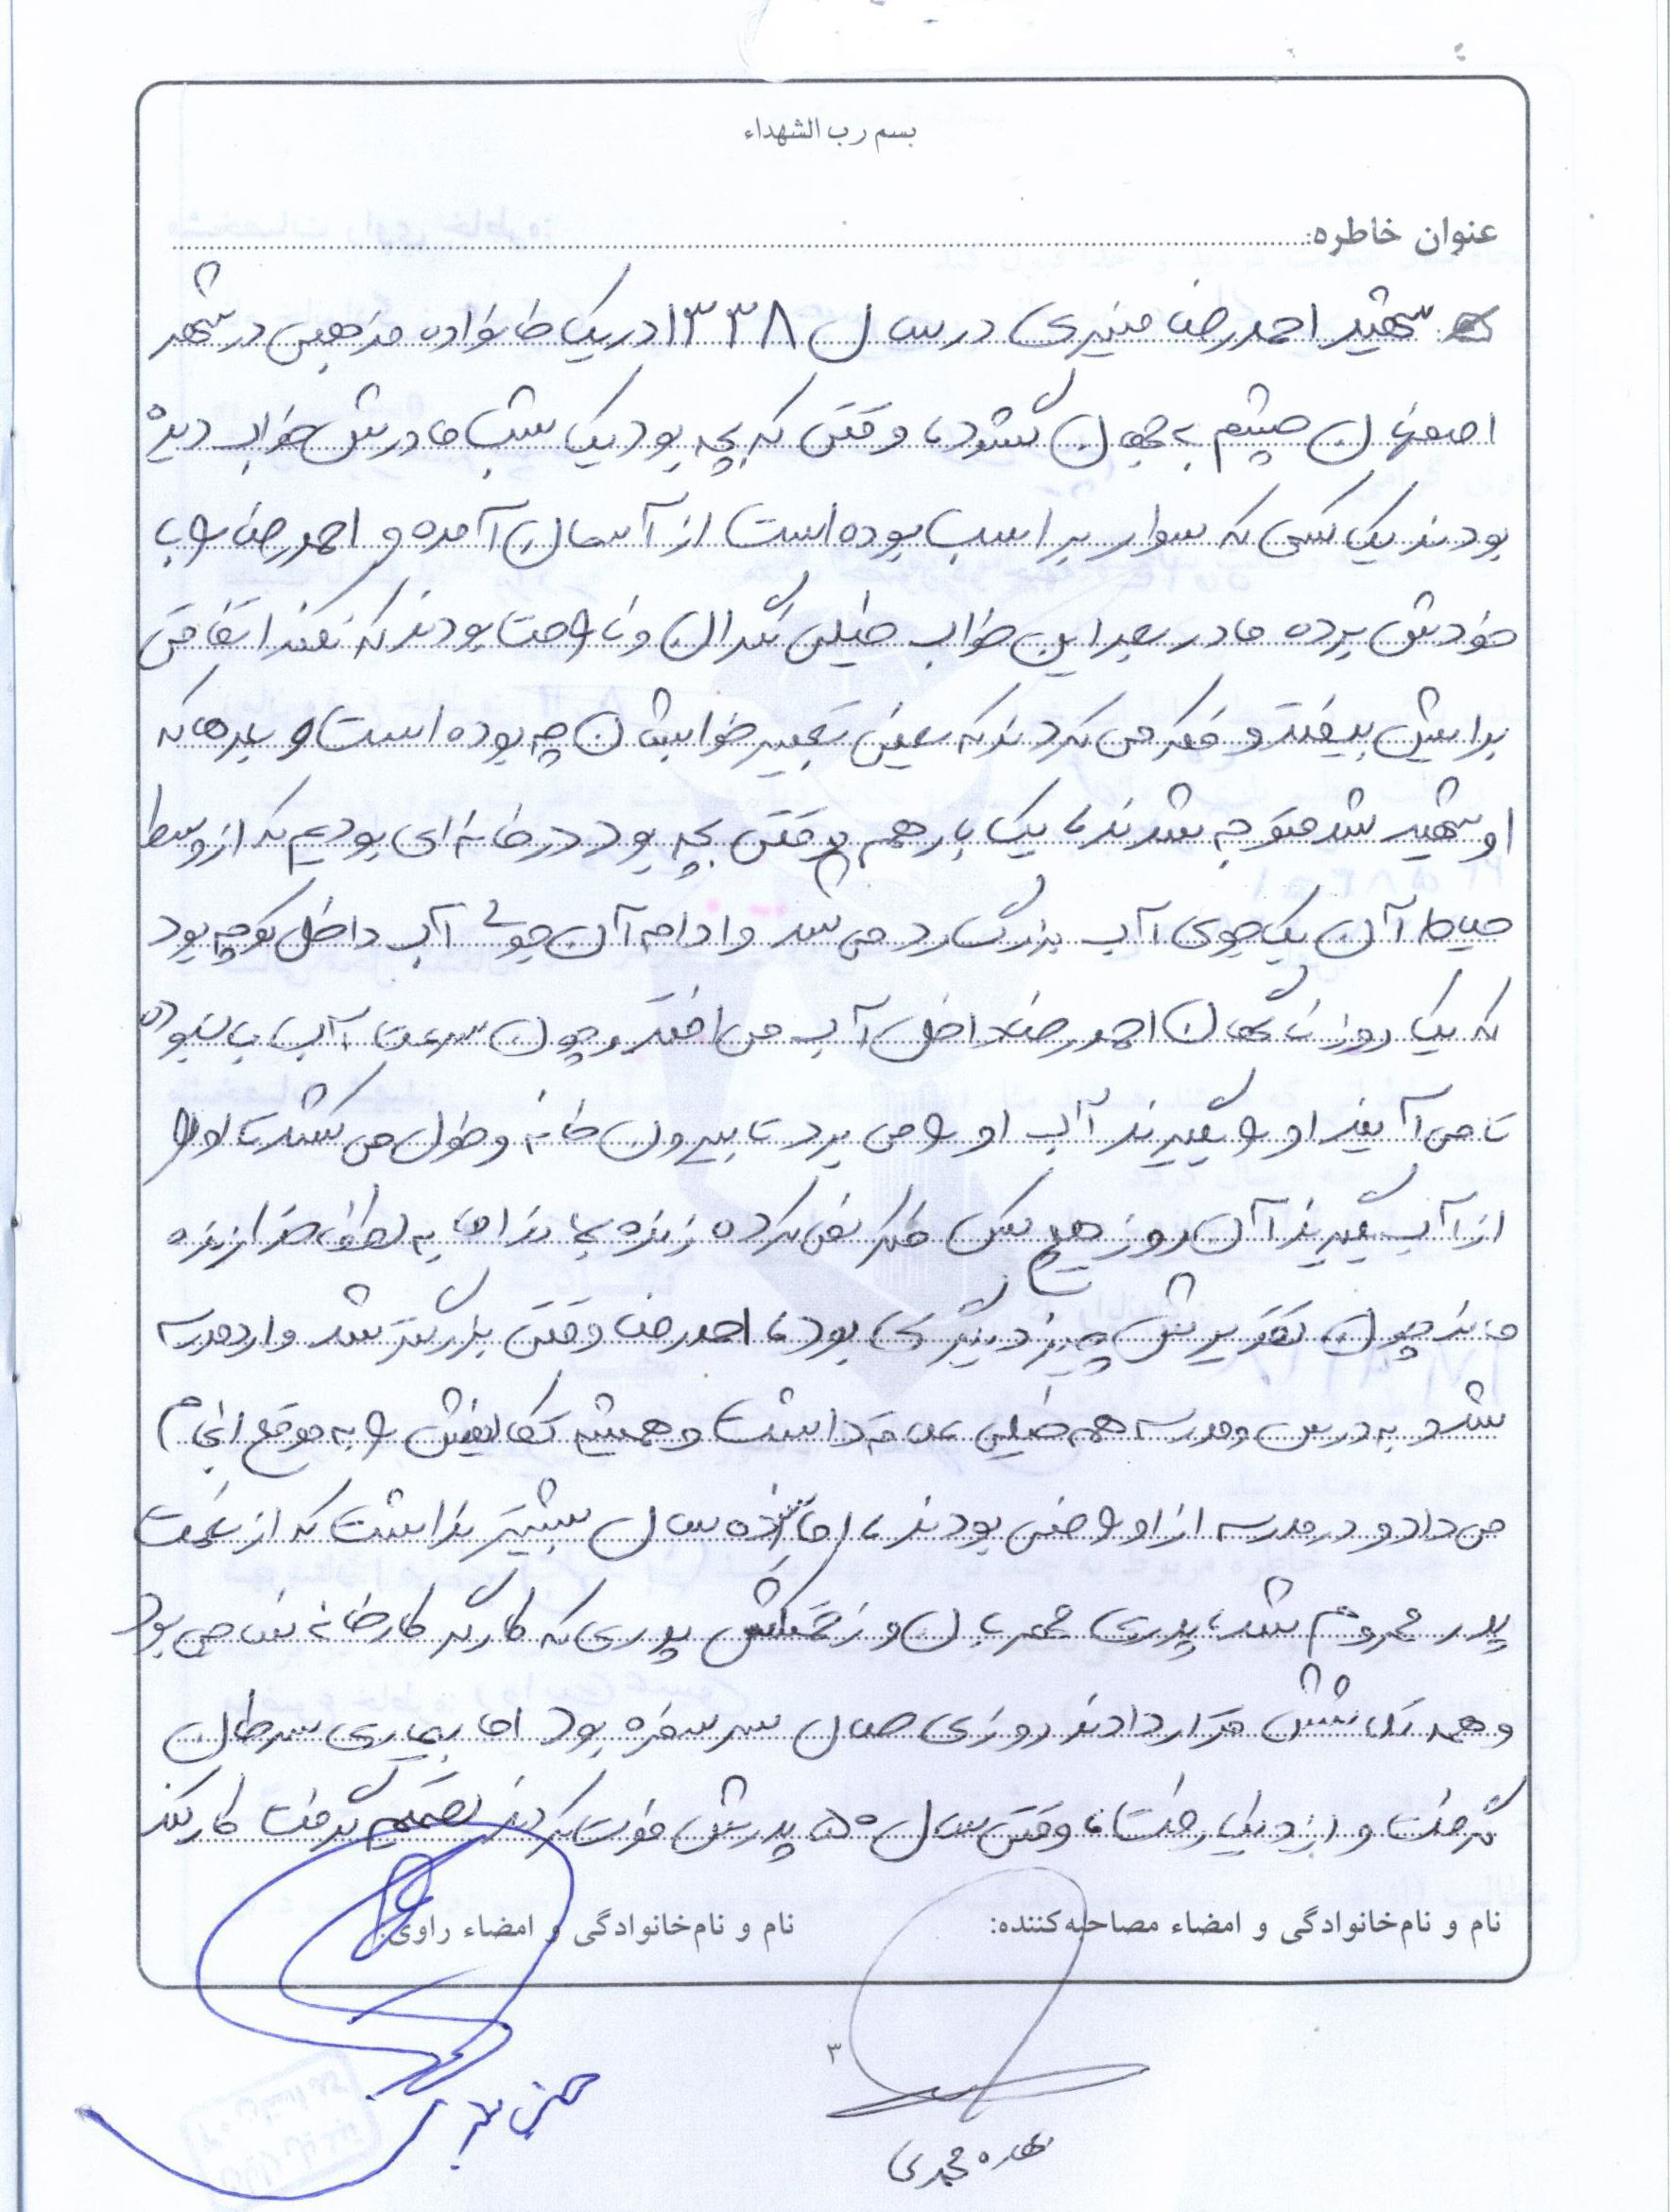 بسم رب الشهداء
عنوان خاطره:
شهید احمدرضا منیری در سال ۱۳۳۸ در یک خانواده مذهبی در شهر
اصفهان چشم به جهان گشود، وقتی که بچه بود یک شب مادرش خواب دیده
بودند یک کسی که سوار بر اسب بوده است از آسمان آمده و احمدرضا را با
خودش برده مادر بعد این خواب خیلی نگران و ناراحت بودند که نکند اتفاقی
برایش بیفتد و فکر می کردند که یعنی تعبیر خوابشان چه بوده است و بعدها که
او شهید شد متوجه شدند، یک بار هم وقتی بچه بود در خانه ای بودیم که از وسط
حیاط آن یک جوی آب بزرگ رد می شد و ادامه آن جوی آب داخل کوچه بود
که یک روز ناگهان احمدرضا داخل آب می افتد و چون سرعت آب بالا بوده
تا می آیند او را بگیرند آب او را می برد تا بیرون خانه و طول می کشد تا او را
از آب بگیرند آن روز هیچ کس فکر نمی کرده زنده بماند اما به لطف خدا زنده
ماند چون تقدیرش چیز دیگری بود، احمدرضا وقتی بزرگتر شد وارد مدرسه
شد به درس و مدرسه هم خیلی علاقه داشت و همیشه تکالیفش را به موقع انجام
می داد و در مدرسه از او راضی بودند، اما سال بیشتر نداشت که از نعمت
پدر محروم شد، پدری مهربان و زحمتکش پدری که کارگر کارخانه نساجی بود
و همه تلاشش قرار دادند روزی حلال سر سفره بود اما بیماری سرطان
گرفت و از دنیا رفت، وقتی سال ۵۰ پدرش فوت کردند تصمیم گرفت کار کند
نام و نام‌خانوادگی و امضاء مصاحبه‌کننده:
نام و نام‌خانوادگی و امضاء راوی:
۳
محمدی